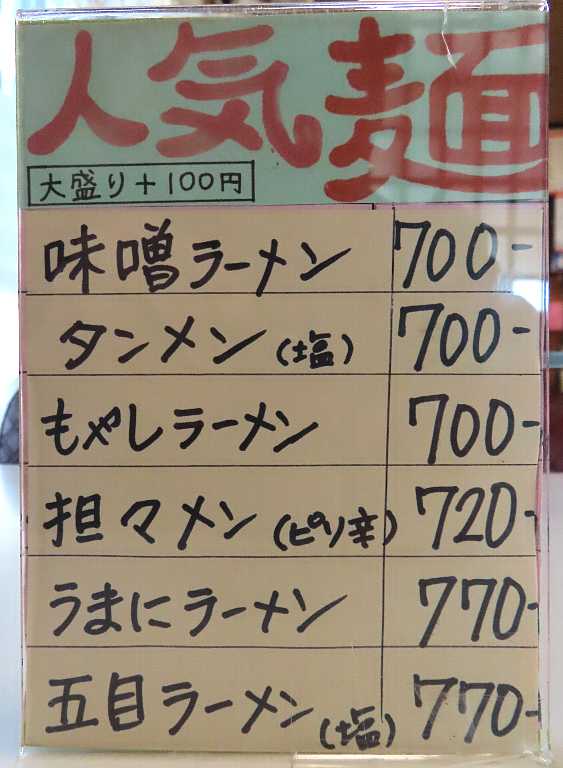 人気麺
大盛り+100円
味噌ラーメン 700-
タンメン(塩) 700-
もやしラーメン 700-
担々メン(ピリ辛) 720-
うまにラーメン 770-
五目ラーメン(塩) 770-